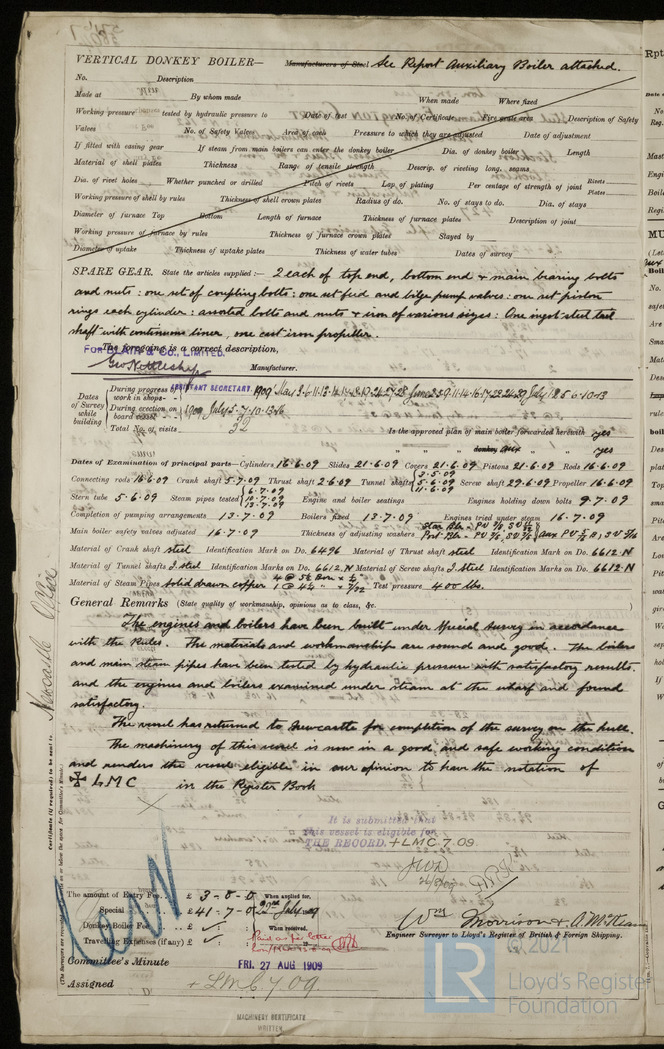 VERTICAL DONKEY BOILER— Manufacturers of Steel See Report Auxiliary Boiler attached.
No. Description
Made at By whom made When made Where fixed
Working pressure tested by hydraulic pressure to Date of test No. of Certificate Fire grate area Description of Safety
Valves No. of Safety Valves Area of each Pressure to which they are adjusted Date of adjustment
If fitted with easing gear If steam from main boilers can enter the donkey boiler Dia. of donkey boiler Length
Material of shell plates Thickness Range of tensile strength Descrip. of riveting long. seams
Dia. of rivet holes Whether punched or drilled Pitch of rivets Lap of plating Per centage of strength of joint Rivets Plates
Working pressure of shell by rules Thickness of shell crown plates Radius of do. No. of stays to do. Dia. of stays
Diameter of furnace Top Bottom Length of furnace Thickness of furnace plates Description of joint
Working pressure of furnace by rules Thickness of furnace crown plates Stayed by
Diameter of uptake Thickness of uptake plates Thickness of water tubes Dates of survey
SPARE GEAR. State the articles supplied:— 2 each of top end, bottom end & main bearing bolts
and nuts: one set of coupling bolts: one set feed and bilge pump valves: one set piston
rings each cylinder: assorted bolts and nuts & iron of various sizes: One ingot steel tail
shaft with continuous liner, one cast iron propeller.
The foregoing is a correct description,
FOR BLAIR & Co., LIMITED.
Manufacturer.
ASSISTANT SECRETARY.
Dates of Survey while building
During progress of work in shops - - 1909
During erection on board vessel - - 1909 July 5. 7. 10. 13. 16
Total No. of visits
Is the approved plan of main boiler forwarded herewith yes
" " " donkey aux " " " yes
Dates of Examination of principal parts—Cylinders 16.6.09 Slides 21.6.09 Covers 21.6.09 Pistons 21.6.09 Rods 16.6.09
Connecting rods 16.6.09 Crank shaft 5.7.09 Thrust shaft 2.6.09 Tunnel shafts 11.6.09 Screw shaft 29.6.09 Propeller 16.6.09
Stern tube 5.6.09 Steam pipes tested 6.7.09 10.7.09 13.7.09 Engine and boiler seatings Engines holding down bolts 9.7.09
Completion of pumping arrangements 13.7.09 Boilers fixed 13.7.09 Engines tried under steam 16.7.09
Main boiler safety valves adjusted 16.7.09 Thickness of adjusting washers
Material of Crank shaft steel Identification Mark on Do. 6496 Material of Thrust shaft steel Identification Mark on Do. 6612.N
Material of Tunnel shafts I. steel Identification Marks on Do. 6612.N Material of Screw shafts I. steel Identification Marks on Do. 6612.N
Material of Steam Pipes solid drawn copper Test pressure 400 lbs.
General Remarks (State quality of workmanship, opinions as to class, &c.
The engines and boilers have been built under special survey in accordance
with the Rules. The materials and workmanship are sound and good. The boilers
and main steam pipes have been tested by hydraulic pressure with satisfactory results.
and the engines and boilers examined under steam at the wharf and found
satisfactory.
The vessel has returned to Newcastle for completion of the survey on the hull.
The machinery of this vessel is now in a good and safe working condition
and renders the vessel eligible in our opinion to have the notation of
✠ LMC in the Register Book
It is submitted that
this vessel is eligible for
THE RECORD. + LMC 7.09.
The amount of Entry Fee .. £ 3-0-0 When applied for,
Special .. .. £ 41-7-0
Donkey Boiler Fee .. .. £ When received,
Travelling Expenses (if any) £
Paid as per letter
Morrison & A. McKean
Engineer Surveyor to Lloyd's Register of British & Foreign Shipping.
Committee's Minute FRI. 27 AUG 1909
Assigned + LMC 7.09
MACHINERY CERTIFICATE
WRITTEN
Newcastle Office
Certificate (if required) to be sent to
© 2021
LR
Lloyd's Register
Foundation